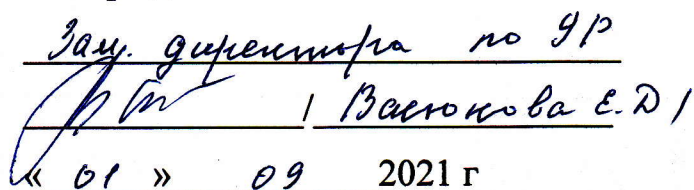 Зам. директора по УР
/ Васюкова Е.Д /
« 01 » 09 2021 г